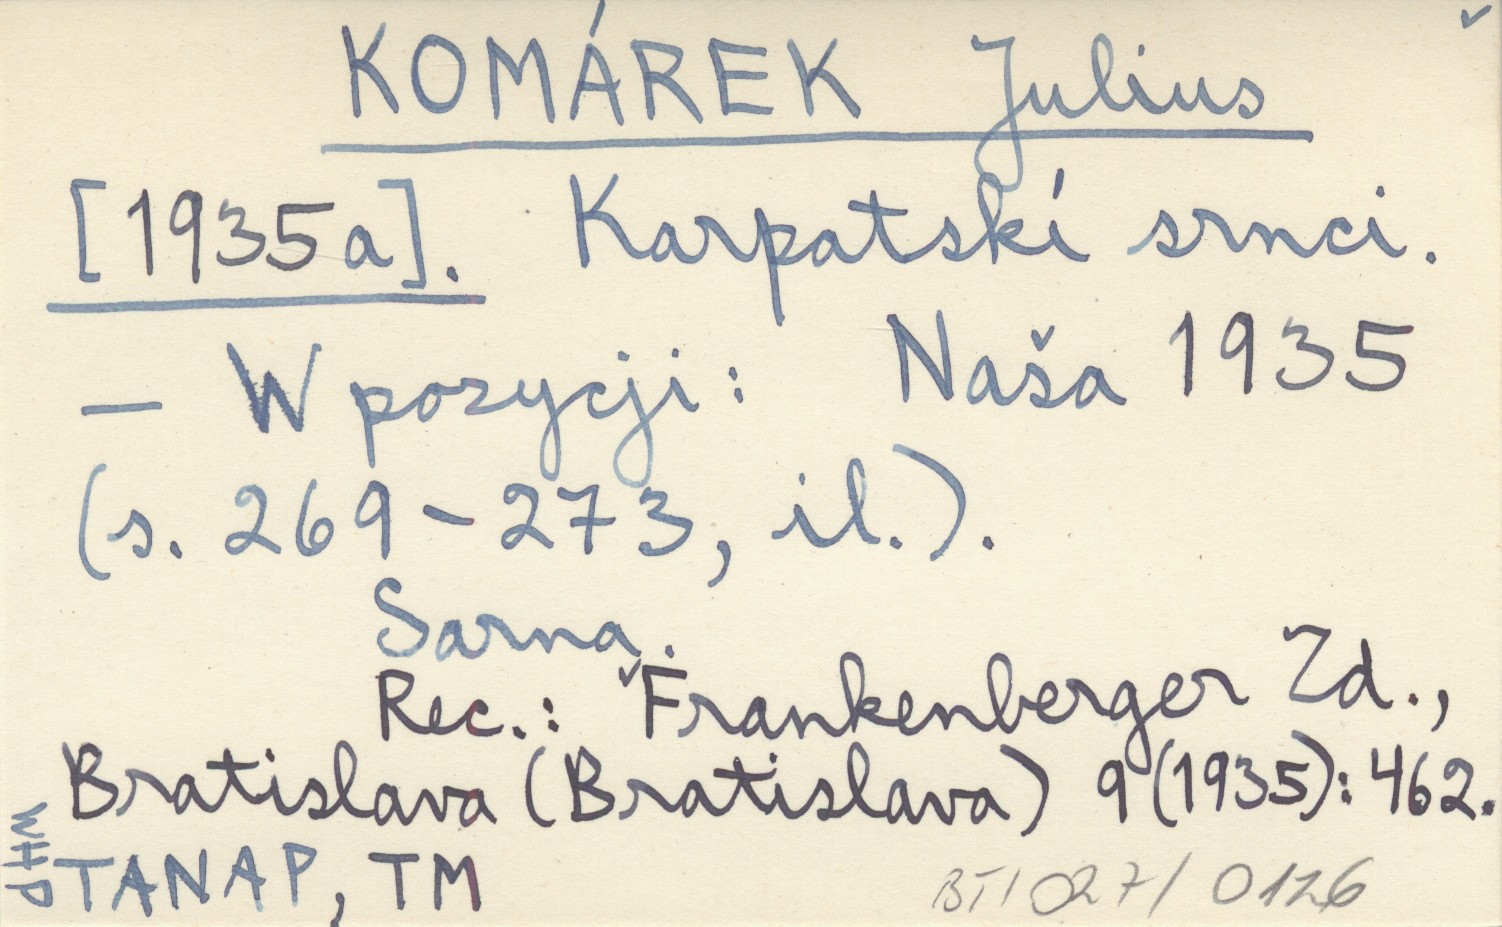 KOMÁREK Julius
[1935a]. Karpatskí srnci.
— W pozycji: Naša 1935
(s. 269-273, il.).
Sarna.
Rec.: ˇFrankenberger Zd.,
Bratislava (Bratislava) 9 (1935): 462.
WHP
TANAP, TM
BTI 027/0126